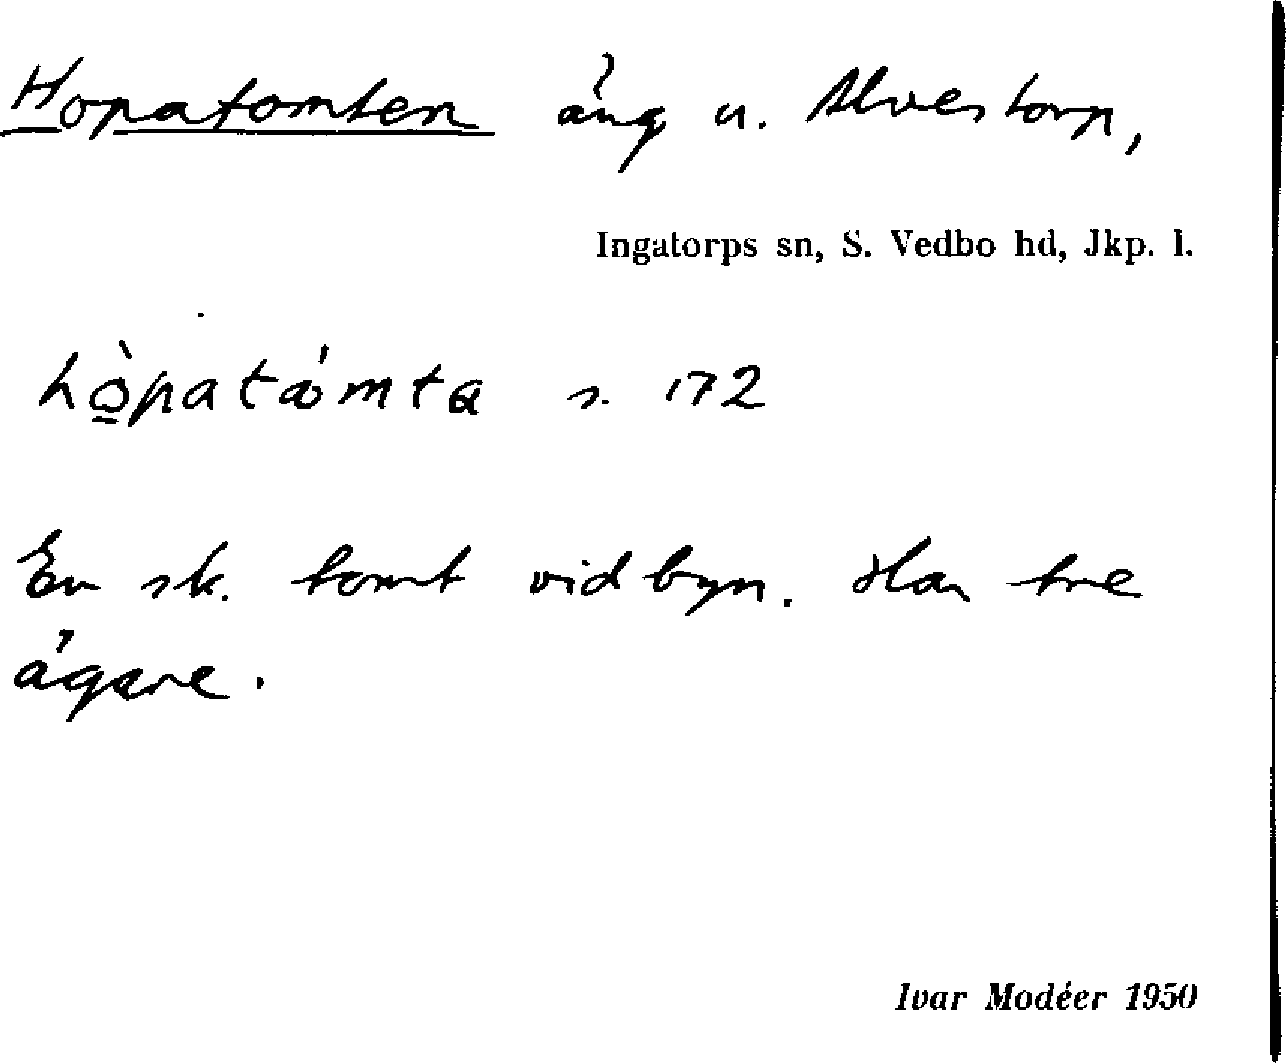 Hopatomten äng u. Alvestorp,
Ingatorps sn, S. Vedbo hd, Jkp. l.
hò̱patåmta s. 172
En sk. tomt vid byn. Har tre
ägare.
Ivar Modéer 1950